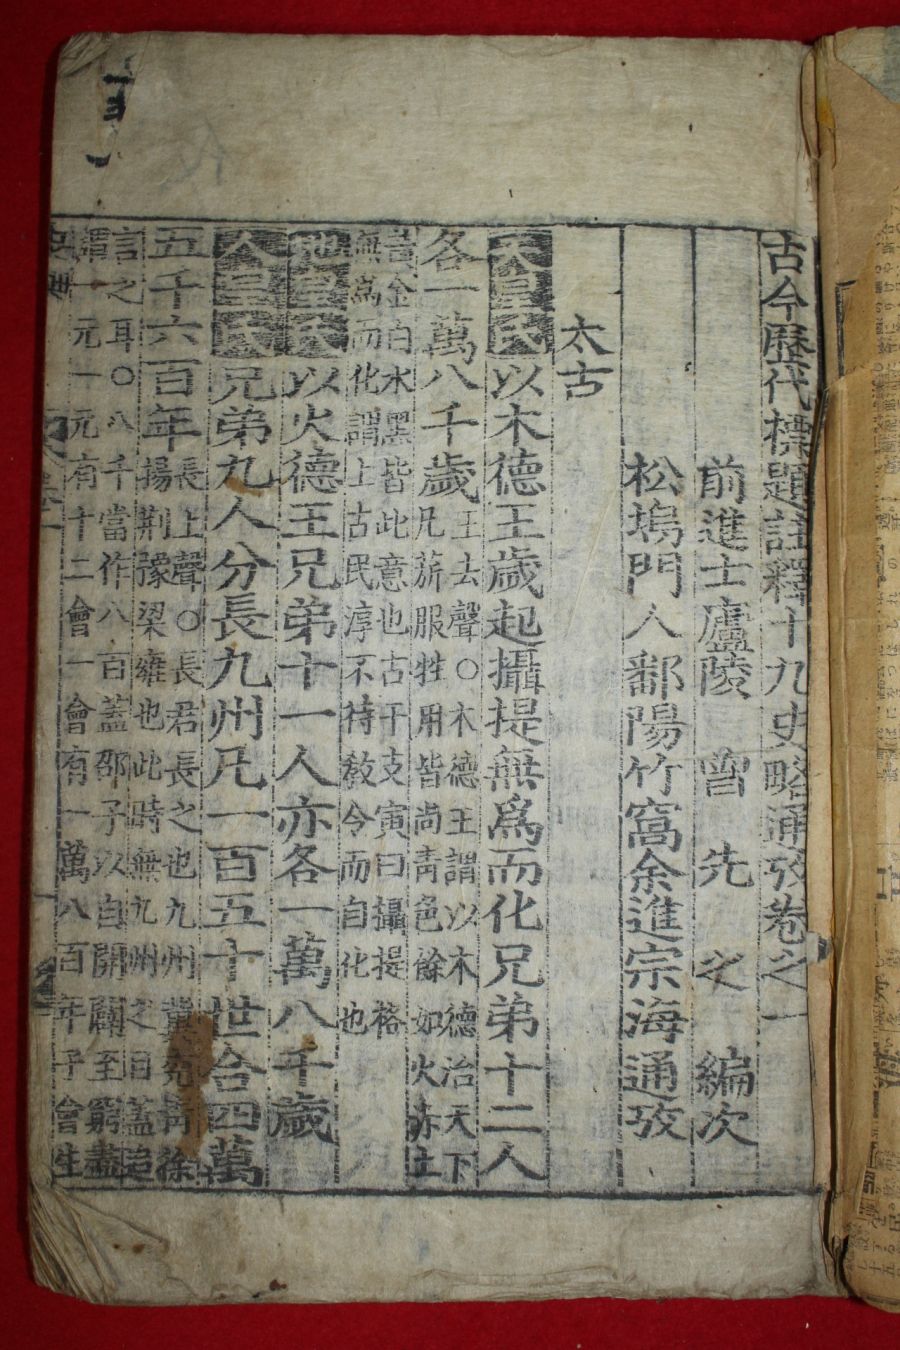 古今歷代標題註釋十九史略通攷卷之一
前進士廬陵 曾 先 之 編次
松塢門人鄱陽竹窩余進宗海通攷
太古
天皇氏以木德王歲起攝提無爲而化兄弟十二人
各一萬八千歲王去聲○木德王謂以木德治天下
凡旂服牲用皆尚靑色餘如火赤土
黃金白水黑皆此意也古干支寅曰攝提格
無爲而化謂上古民淳不待敎令而自化也
地皇氏以火德王兄弟十一人亦各一萬八千歲
人皇氏兄弟九人分長九州凡一百五十世合四萬
五千六百年長上聲○長君長之也九州冀兗靑徐
揚荊豫梁雍也此時無九州之目蓋追
言之耳○八千當作八百蓋邵子以自開闢至窮盡
謂一元一元有十二會一會有一萬八百年子會生